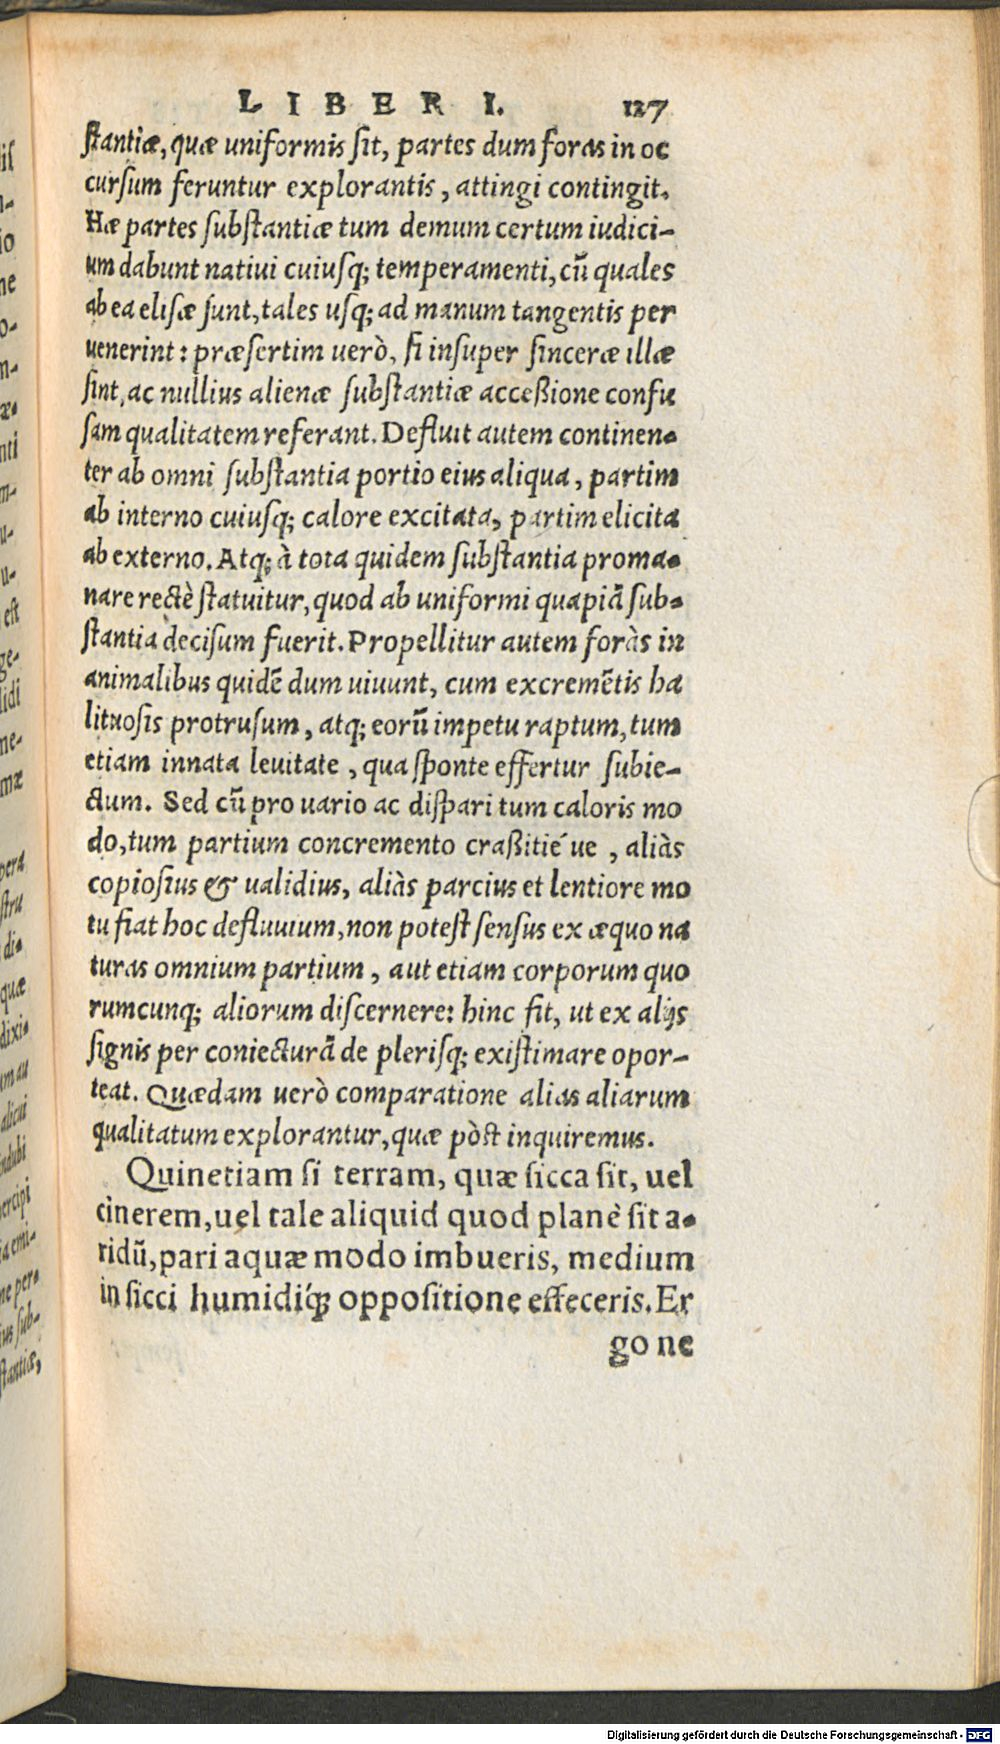 LIBER I. 127
stantiæ, quæ uniformis sit, partes dum foras in oc
cursum feruntur explorantis, attingi contingit.
Hæ partes substantiæ tum demum certum iudici-
um dabunt nativi cuiusq; temperamenti, cũ quales
ab ea elisæ sunt, tales usq; ad manum tangentis per
uenerint: præsertim uerò, si insuper sinceræ illæ
sint, ac nullius alienæ substantiæ acceßione confu
sam qualitatem referant. Defluit autem continen-
ter ab omni substantia portio eius aliqua, partim
ab interno cuiusq; calore excitata, partim elicita
ab externo. Atq; à tota quidem substantia proma-
nare rectè statuitur, quod ab uniformi quapiã sub-
stantia decisum fuerit. Propellitur autem foràs in
animalibus quidẽ dum uiuunt, cum excremẽtis ha
lituosis protrusum, atq; eorũ impetu raptum, tum
etiam innata leuitate, qua sponte effertur subie-
ctum. Sed cũ pro uario ac dispari tum caloris mo
do, tum partium concremento craßitié ue, aliàs
copiosius & ualidius, aliàs parcius et lentiore mo
tu fiat hoc defluuium, non potest sensus ex æquo na
turas omnium partium, aut etiam corporum quo
rumcunq; aliorum discernere: hinc fit, ut ex alijs
signis per coniecturã de plerisq; existimare opor-
teat. Quædam uerò comparatione alias aliarum
qualitatum explorantur, quæ pòst inquiremus.
Quinetiam si terram, quæ sicca sit, uel
cinerem, uel tale aliquid quod planè sit a-
ridũ, pari aquæ modo imbueris, medium
in sicci humidíq; oppositione effeceris. Er
go ne
is
io
ne
o-
æ-
nti
u-
est
ge-
lidi
ne-
mæ
pera
stru
di-
quæ
dixi-
um au
alicui
indubi
percipi
ia emi-
ne per-
ius sub-
stantiæ,
Digitalisierung gefördert durch die Deutsche Forschungsgemeinschaft - DFG